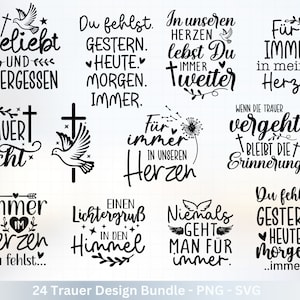 geliebt
UND
VERGESSEN
Du fehlst.
GESTERN.
HEUTE.
MORGEN.
IMMER.
In unseren
HERZEN
lebst Du
IMMER
weiter
Für
IMMER
in meinem
Herzen
Für
immer
IN UNSEREN
Herzen
WENN DIE TRAUER
vergeht
BLEIBT DIE
Erinnerung
immer
IM
Herzen
du fehlst...
EINEN
Lichtergruß
IN DEN
Himmel
Niemals
GEHT
MAN FÜR
immer
Du fehlst
GESTERN
HEUTE
morgen
...immer
24 Trauer Design Bundle - PNG - SVG